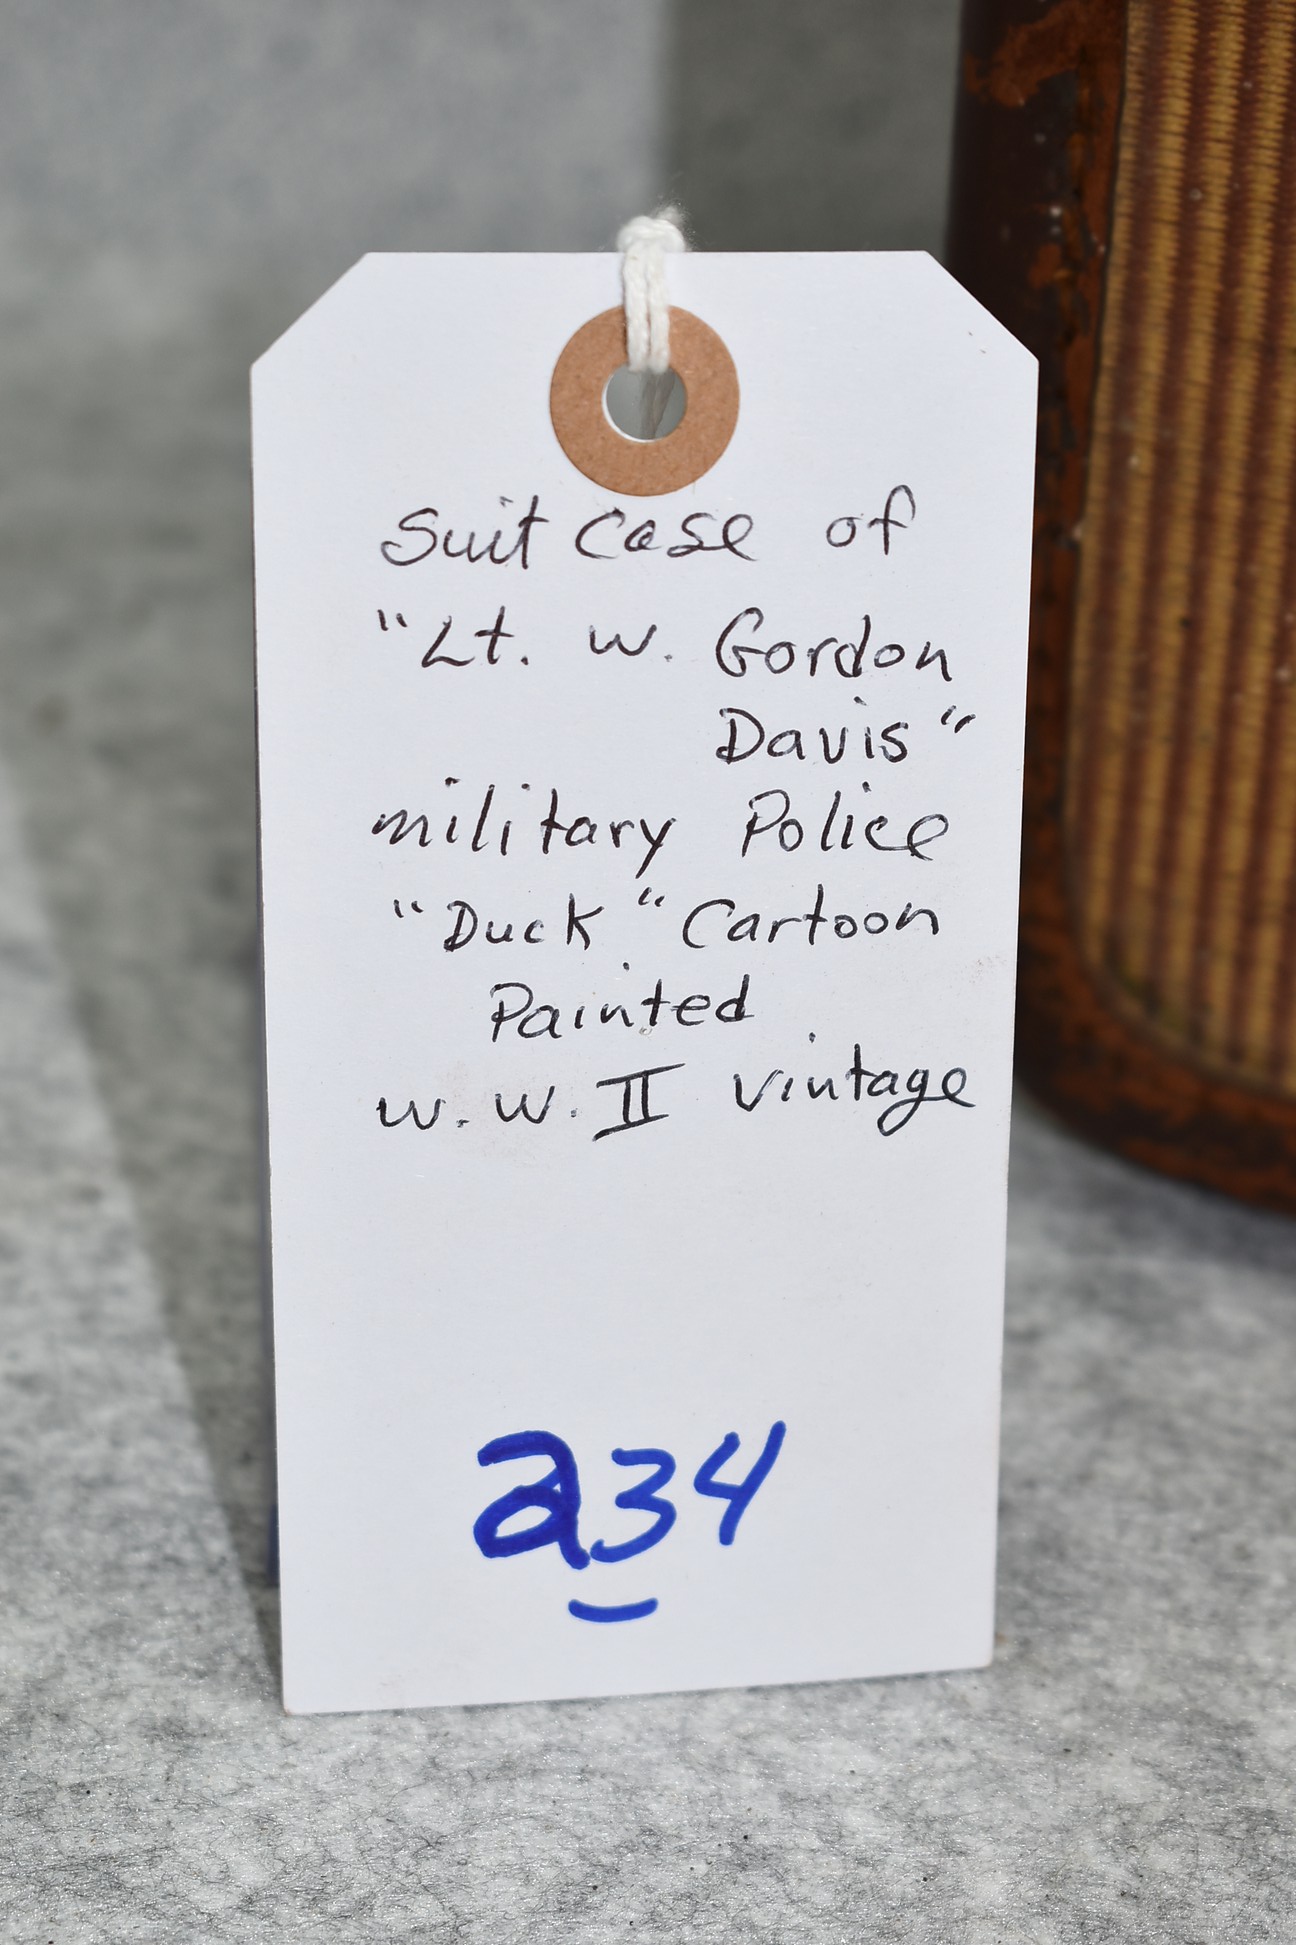 Suit Case of
"Lt. W. Gordon
Davis"
military Police
"Duck" Cartoon
Painted
W.W. II Vintage
234